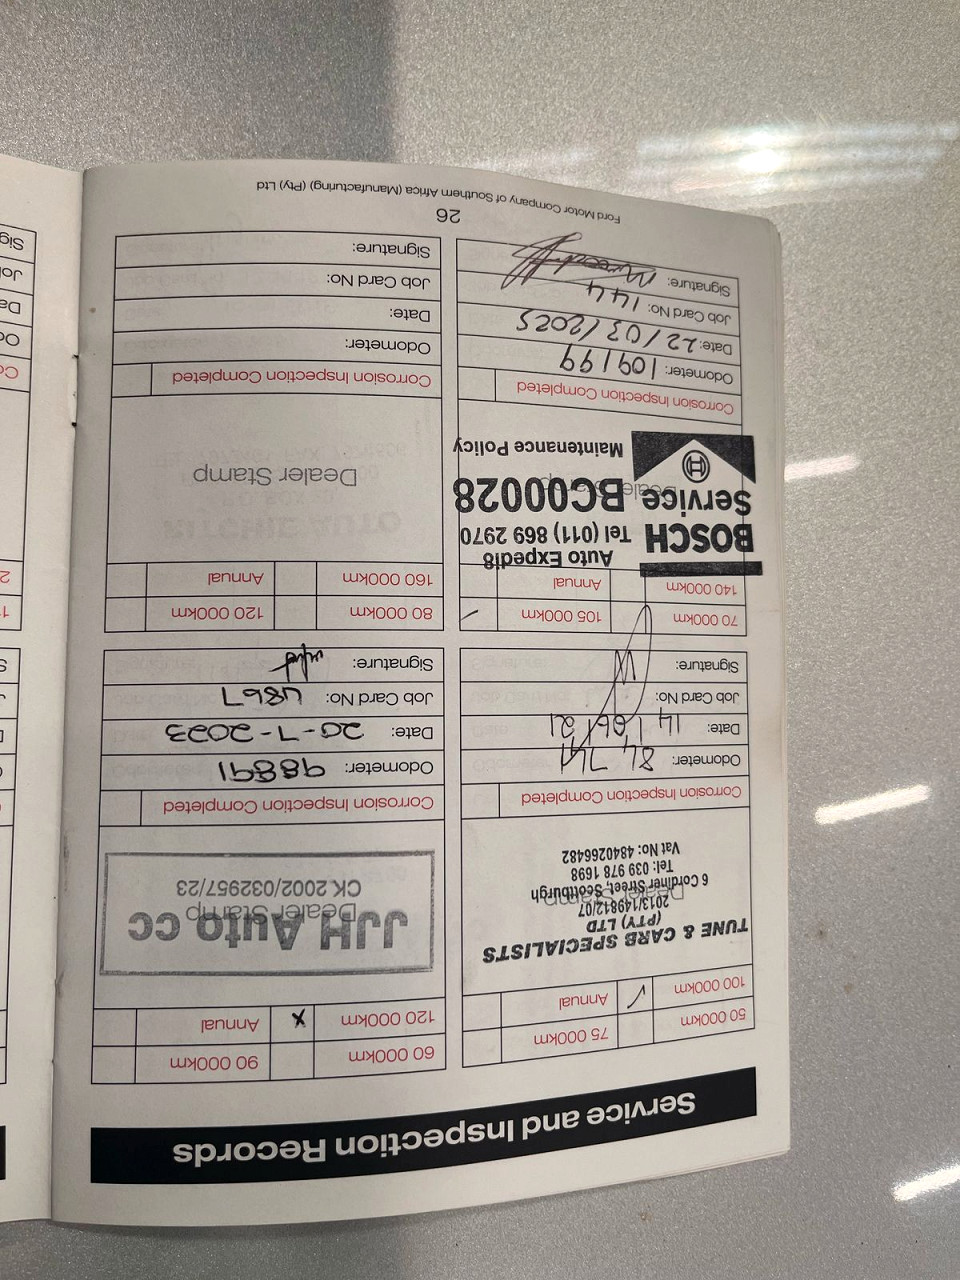 Service and Inspection Records
50 000km 75 000km
100 000km ✓ Annual
TUNE & CARB SPECIALISTS
(PTY) LTD
2013/149812/07
Dealer Stamp
6 Cordiner Street, Scottburgh
Tel: 039 978 1698
Vat No: 4840266482
Corrosion Inspection Completed
Odometer: 84
Date: 14/06/21
Job Card No:
Signature:
60 000km 90 000km
120 000km X Annual
JJH Auto cc
Dealer Stamp
CK 2002/032957/23
Corrosion Inspection Completed
Odometer: 98891
Date: 20-7-2023
Job Card No: 4867
Signature:
70 000km 105 000km
140 000km Annual
BOSCH
Service
Auto Expedi8
Tel (011) 869 2970
BC00028
Dealer Stamp
Maintenance Policy
Corrosion Inspection Completed
Odometer: 109199
Date: 22/03/2025
Job Card No: 144
Signature:
80 000km 120 000km
160 000km Annual
Dealer Stamp
Corrosion Inspection Completed
Odometer:
Date:
Job Card No:
Signature:
26
Ford Motor Company of Southern Africa (Manufacturing) (Pty) Ltd